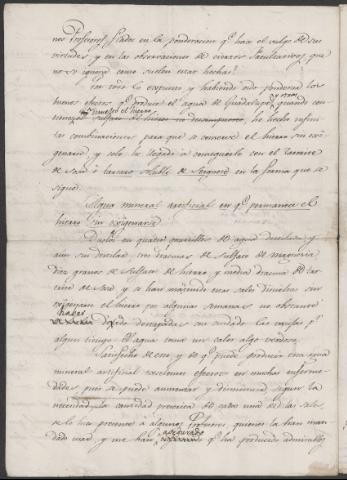 nos Profesores fiados en la ponderacion q.e hace el vulgo de sus
virtudes, y en las observaciones de varios Facultativos, que
no se ignora como suelen estar hechas.
Por todo lo expuesto, y habiendo oido ponderar los
buenos efectos q.e produce el agua de
y creo
quando con-
nuestro el hierro
sulfato de hierro sin descomponerse, he hecho repeti-
das combinaciones para que se conserve el hierro sin oxi-
genarse, y solo he llegado á conseguirlo con el Tartrite
de Sosa ó tartaro soluble de Seignete en la forma que se
sigue.
Agua mineral artificial en q.e permanece el
hierro sin oxigenarse
en quatro quartillos de agua destilada, y
aun sin destilar, tres dracmas de sulfate de magnesia
diez granos de sulfate de hierro, y media dracma de tar-
trite de Sosa, y se han mezclado estas sales disueltas sin
oxigenarse el hierro por algunas semanas no obstante
haber
dejado destapadas sin cuidado las vasijas p.r
algun tiempo el agua tomó un color algo verdoso.
Satisfecho de eso, y de q.e puede producir esta agua
mineral artificial excelentes efectos en muchas enferme-
dades, pues se puede aumentar y disminuir segun la
necesidad, la cantidad precisa de cada una de las sales,
se lo hice presente á algunos Profesores, quienes la han man-
dado usar, y me han
asegurado
q.e ha producido admirables